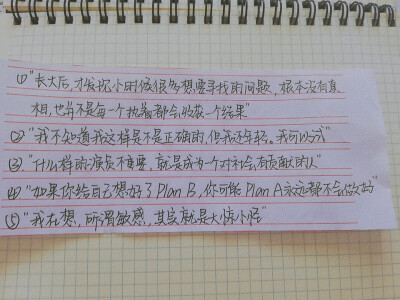 ①"长大后,才发现小时候很多想要寻找的问题,根本没有真
相,也并不是每一个执着都会收获一个结果"
②"我不知道我这样是不是正确的,但我还年轻。我可以试"
③"什么样的演员不重要,就是成为一个对社会有贡献的人"
④"如果你给自己想好了Plan B,你可能Plan A永远都不会做好"
⑤"我在想,所谓敏感,其实就是大惊小怪"